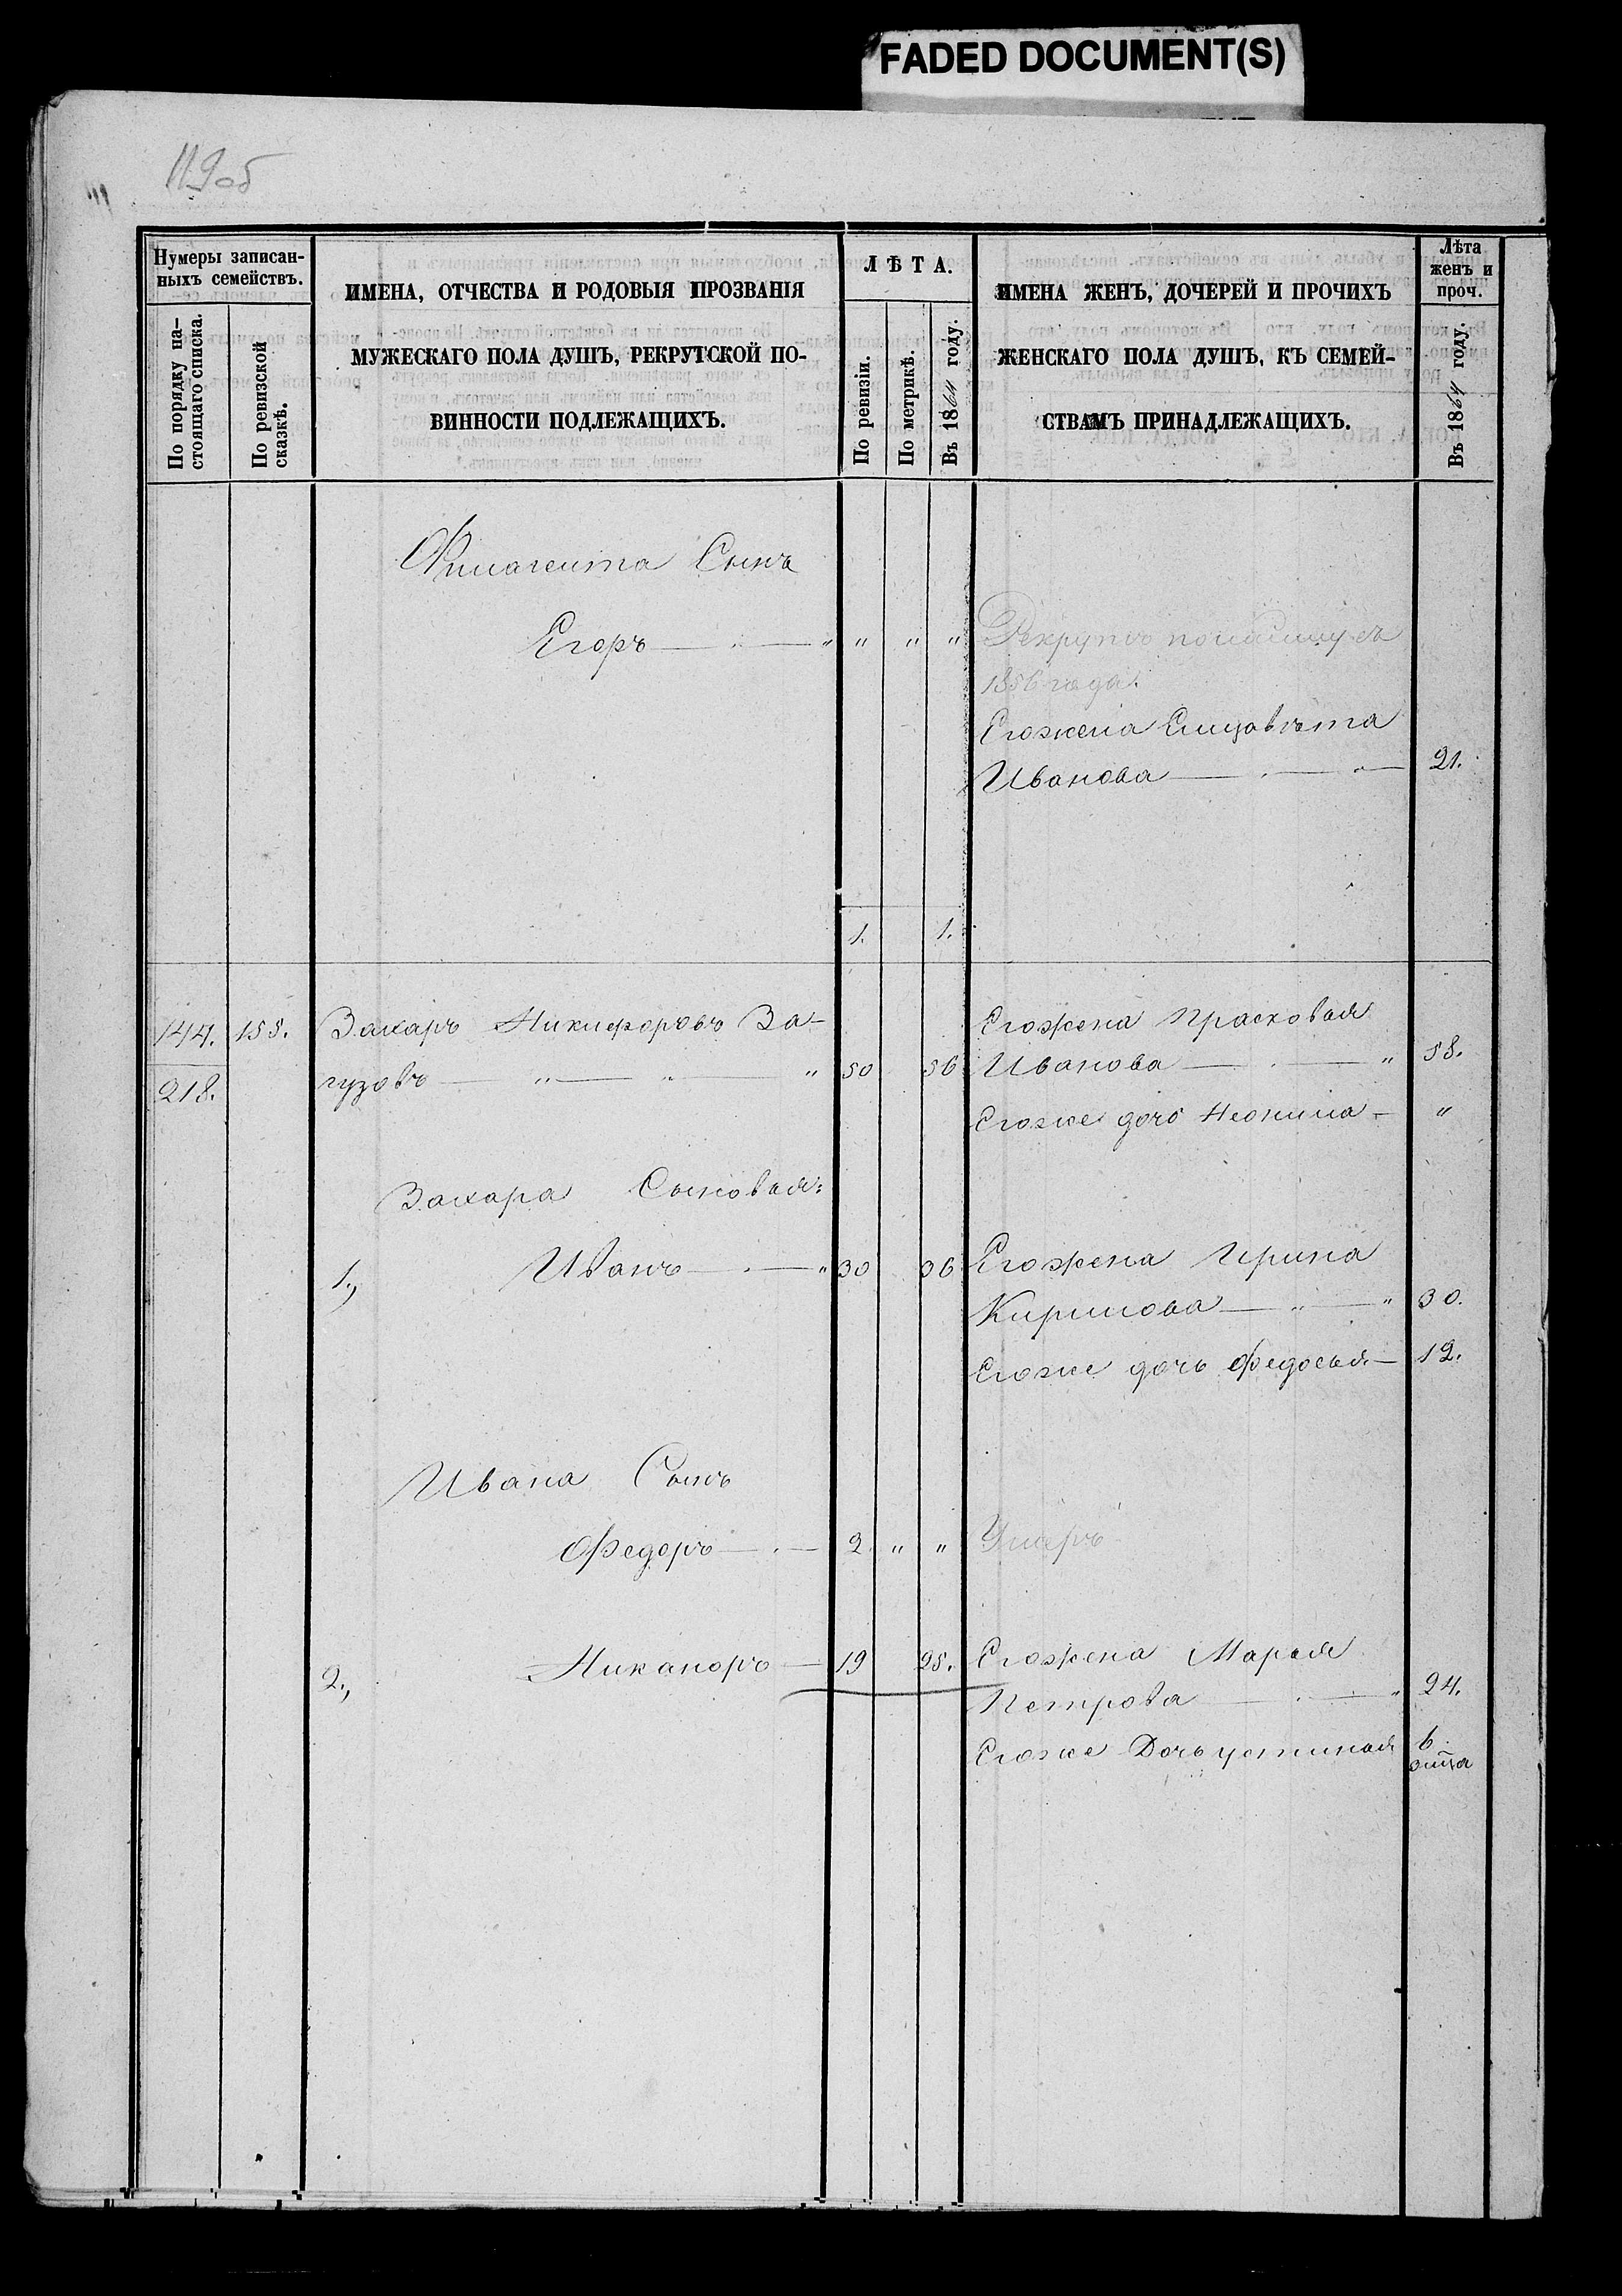 FADED DOCUMENT(S)
119об
Нумеры записан-
ныхъ семействъ.
По порядку на-
стоящаго списка.
По ревизской
сказкѣ.
ИМЕНА, ОТЧЕСТВА И РОДОВЫЯ ПРОЗВАНІЯ
МУЖЕСКАГО ПОЛА ДУШЪ, РЕКРУТСКОЙ ПО-
ВИННОСТИ ПОДЛЕЖАЩИХЪ.
ЛѢТА.
По ревизіи.
По метрикѣ.
Въ 1864 году.
ИМЕНА ЖЕНЪ, ДОЧЕРЕЙ И ПРОЧИХЪ
ЖЕНСКАГО ПОЛА ДУШЪ, КЪ СЕМЕЙ-
СТВАМЪ ПРИНАДЛЕЖАЩИХЪ.
Лѣта
женъ и
проч.
Въ 1864 году.
Сынъ
Егоръ — " — " " " " Рекрутъ
1856 года.
Егожена Елизавѣта
Иванова — " — 21.
1. 1.
144. 155. Захаръ Никифоровъ За- Егожена Прасковья
218. гузовъ — " — " — " 50 56 Иванова — " 58.
Егоже дочь Неонила — "
Захара Сыновья:
1, Иванъ — " 30 36 Егожена Ирина
Кирилова — " — " 30.
Егоже дочь Федосья — 12.
Ивана Сынъ
Федоръ — 2. " " Умеръ
2., Никаноръ — 19 25. Егожена Марья
Петрова — " 24.
Егоже Дочь устинья 6.